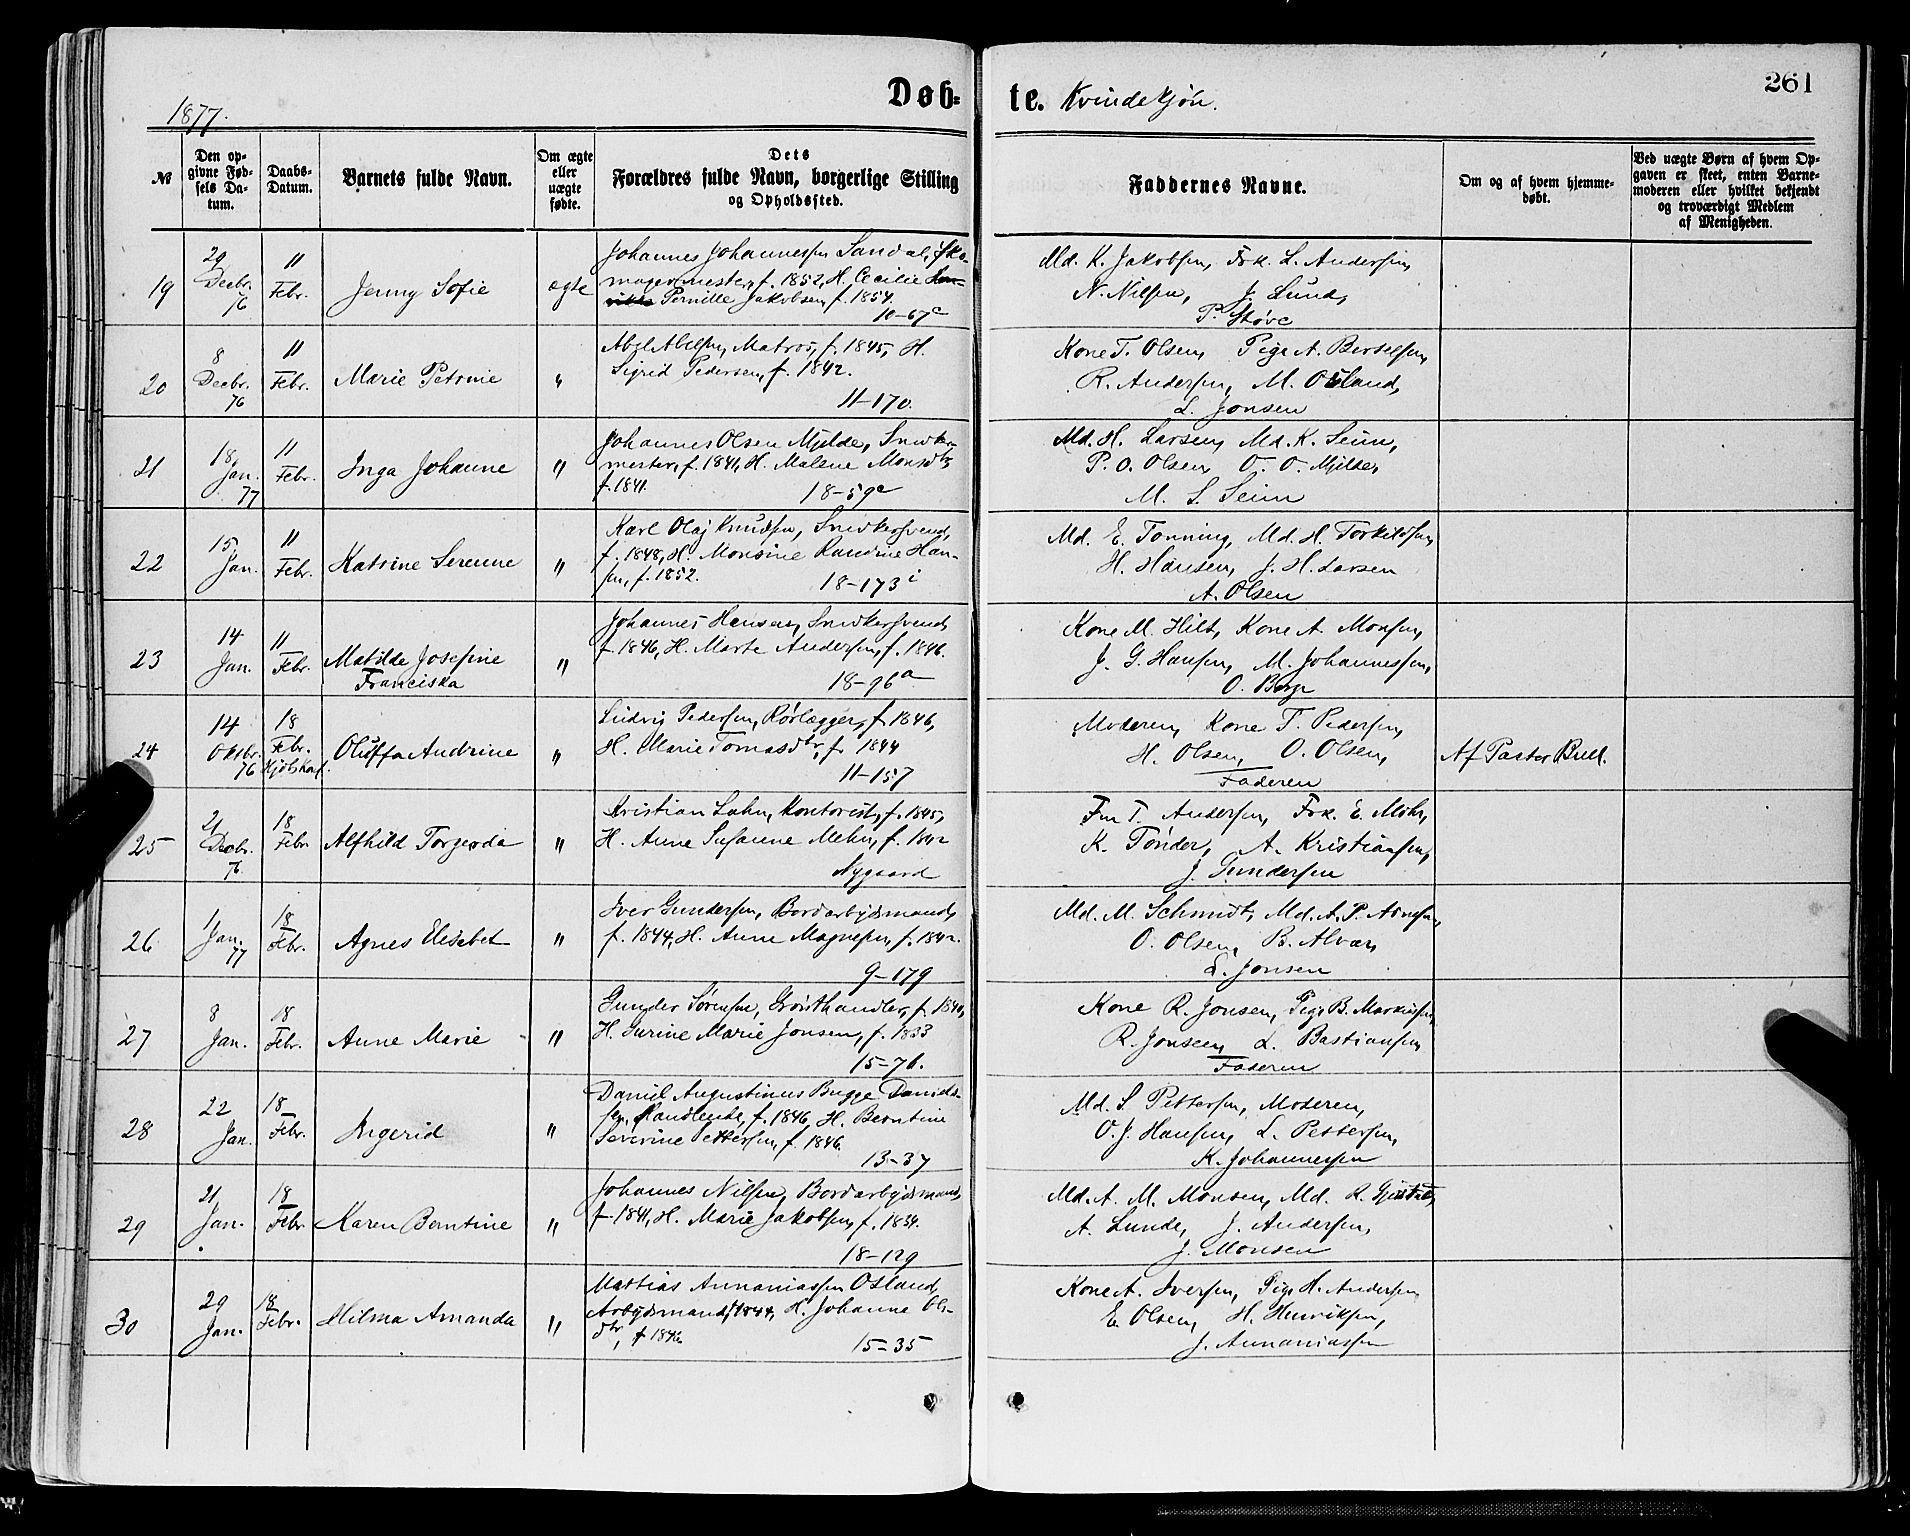 261
1877.
Døb- te. Kvindekjøn.
№
Den op-
givne Fød-
sels Da-
tum.
Daabs-
Datum.
Barnets fulde Navn.
Om ægte
eller
uægte
fødte.
Dets
Forældres fulde Navn, borgerlige Stilling
og Opholdssted.
Faddernes Navne.
Om og af hvem hjemme-
døbt.
Ved uægte Børn af hvem Op-
gaven er skeet, enten Barne-
moderen eller hvilket bekjendt
og troværdigt Medlem
af Menigheden.
19
29
Decbr.
76
11
Febr.
Jenny Sofie
ægte
Johannes Johannessen Sandal, Sko-
magermester, f. 1852, H. Cecilie
Pernille Jakobsen, f. 1854.
10-67c
Md. K. Jakobsen, Frk. L. Andersen,
N. Nilsen, J. Lund,
P. Støve
20
8
Decbr.
76
11
Febr.
Marie Petrine
"
Abel Abelsen, Matros, f. 1845, H.
Sigrid Pedersen, f. 1842.
11-170.
Kone T. Olsen, Pige A. Bertelsen,
R. Andersen, M. Osland,
L. Jonsen
21
18
Jan.
77
11
Febr.
Inga Johanne
"
Johannes Olsen Mjelde, Snedker-
mester, f. 1841, H. Malene Monsdtr,
f. 1841.
18-59c
Md. H. Larsen, Md. K. Seim,
P. O. Olsen, O. O. Mjelde,
M. S. Seim
22
15
Jan.
11
Febr.
Katrine Serenne
"
Karl Olaj Knudsen, Snedkersvend,
f. 1848, H. Monsine Randine Han-
sen, f. 1852.
18-173i
Md. E. Tonning, Md. H. Torkildsen,
H. Hansen, J. H. Larsen
A. Olsen
23
14
Jan.
11
Febr.
Matilde Josefine
Franciska
"
Johannes Hansen, Snedkersvend,
f. 1846, H. Marte Andersen, f. 1846.
18-96a
Kone M. Hilt, Kone A. Monsen,
J. G. Hansen, M. Johannessen,
O. Berge
24
14
Oktbr.
76
18
Febr.
Oluffa Andrine
"
Ludvig Pedersen, Rørlægger, f. 1846,
H. Marie Tomasdtr, f. 1844
11-157
Moderen, Kone T. Pedersen,
H. Olsen, O. Olsen,
Faderen
Af Pastor Bull.
25
21
Decbr.
76
18
Febr.
Alfhild Torgerda
"
Kristian Lahn, Kontorist, f. 1845,
H. Anne Susanne Mehn, f. 1842
Nygaard
Fru T. Andersen, Frk. E. Mohr,
K. Tønder, A. Kristiansen,
J. Gundersen
26
1
Jan.
77
18
Febr.
Agnes Elisebet
"
Iver Gundersen, Bordarbeidsmand,
f. 1844, H. Anne Magnesen, f. 1842.
9-179
Md. M. Schmidt, Md. A. P. Arnesen,
O. Olsen, B. Alver,
L. Jonsen
27
8
Jan.
18
Febr.
Anne Marie
"
Gunder Sørensen, Grønthandler, f. 1840,
H. Gurine Marie Jonsen, f. 1833
15-76.
Kone R. Jonsen, Pige B. Markusen,
R. Jonsen, L. Bastiansen,
Faderen
28
22
Jan.
18
Febr.
Ingerid
"
Daniel Augustinus Bugge Daniel-
sen, Handlende, f. 1846, H. Berntine
Severine Pettersen, f. 1846.
13-37
Md. S. Pettersen, Moderen,
O. J. Hansen, L. Pettersen,
K. Johannessen
29
21
Jan.
18
Febr.
Karen Berntine
"
Johannes Nilsen, Bordarbeidsmand,
f. 1841, H. Marie Jakobsen, f. 1834.
18-129
Md. A. M. Monsen, Md. R.
A. Lunde, J. Andersen,
J. Monsen
30
29
Jan.
18
Febr.
Hilma Amanda
"
Mattias Annaniassen Osland,
Arbeidsmand, f. 1844, H. Johanne Ols-
dtr, f. 1846
15-35
Kone A. Iversen, Pige H. Andersen,
E. Olsen, H. Henriksen,
J. Annaniassen